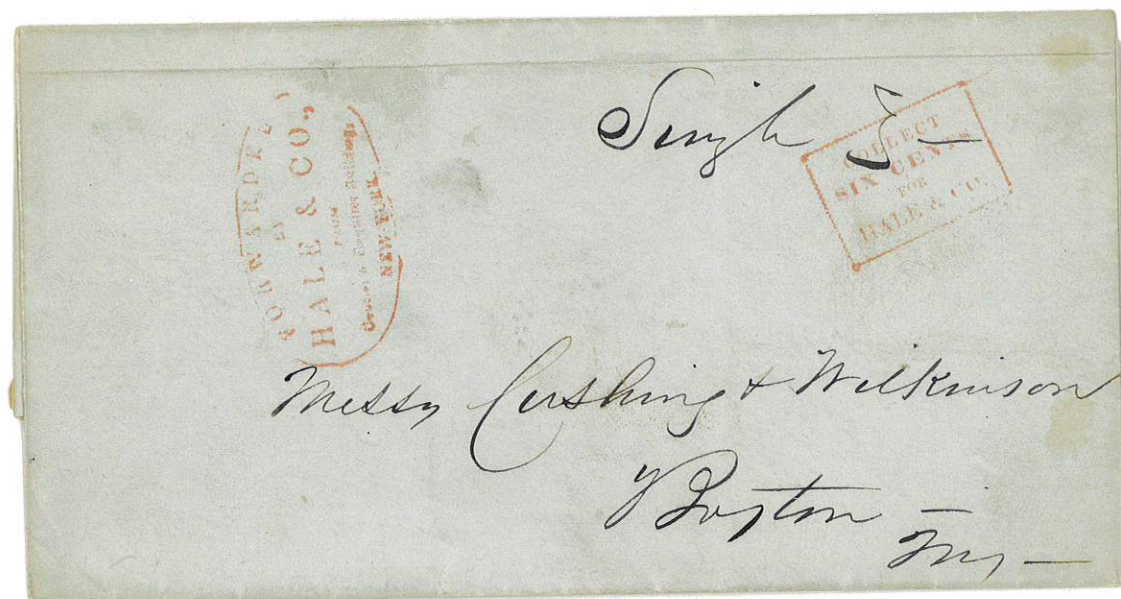 FORWARDED
BY
HALE & CO.,
FROM
Courier & Enquirer Buildings,
NEW-YORK.
Single
COLLECT
SIX CENTS
FOR
HALE & CO.
Messrs Cushing & Wilkinson
Boston